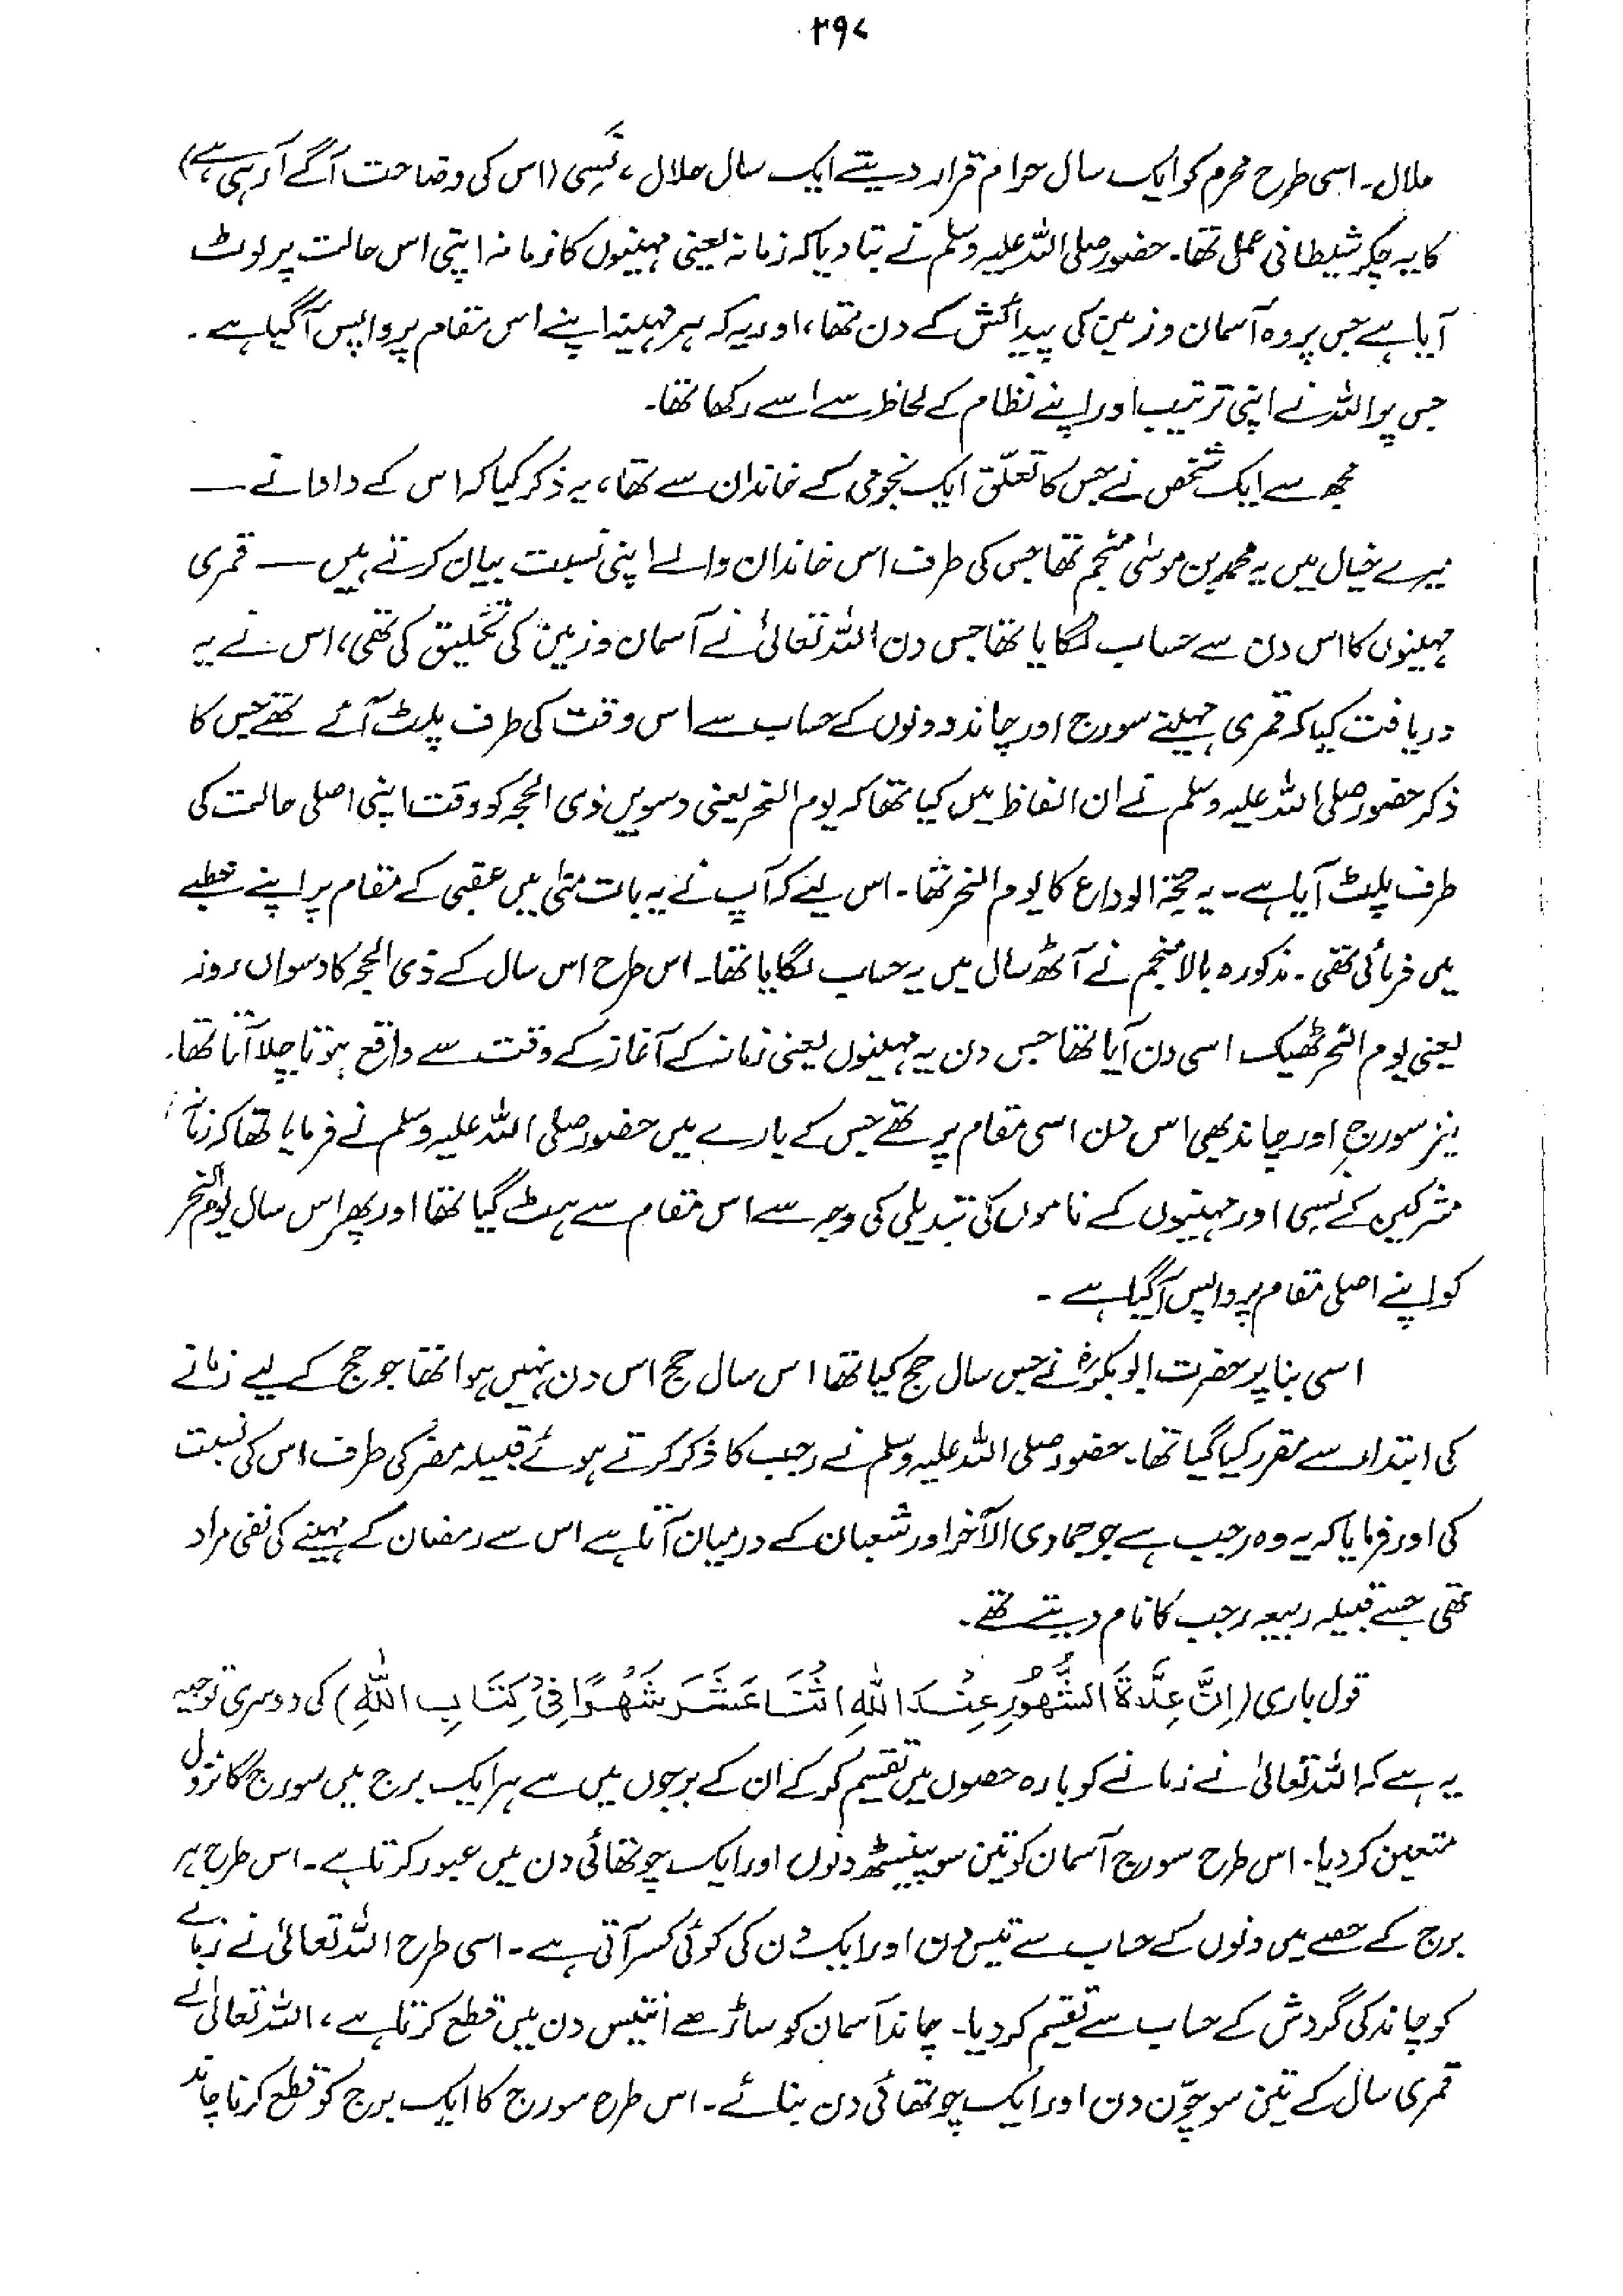 ۳۹۷
حلال۔ اسی طرح محرم کو ایک سال حرام قرار دیتے ایک سال حلال، نَسِی (اس کی وضاحت آگے آرہی ہے)
کا یہ چکر شیطانی عمل تھا۔ حضور صلی اللہ علیہ وسلم نے بتا دیا کہ زمانہ یعنی مہینوں کا زمانہ اپنی اس حالت پر لوٹ
آیا ہے جس پر وہ آسمان و زمین کی پیدائش کے دن تھا، اور یہ کہ ہر مہینہ اپنے اس مقام پر واپس آگیا ہے۔
جس پر اللہ نے اپنی ترتیب اور اپنے نظام کے لحاظ سے اسے رکھا تھا۔
مجھ سے ایک شخص نے جس کا تعلّق ایک نجومی کے خاندان سے تھا، یہ ذکر کیا کہ اس کے دادا نے —
میرے خیال میں یہ محمد بن موسٰی منجم تھا جس کی طرف اس خاندان والے اپنی نسبت بیان کرتے ہیں — قمری
مہینوں کا اس دن سے حساب لگایا تھا جس دن اللہ تعالیٰ نے آسمان و زمین کی تخلیق کی تھی، اس نے یہ
دریافت کیا کہ قمری مہینے سورج اور چاند دونوں کے حساب سے اس وقت کی طرف پلٹ آئے تھے جس کا
ذکر حضور صلی اللہ علیہ وسلم نے ان الفاظ میں کیا تھا کہ یوم النحر یعنی دسویں ذی الحجہ کو وقت اپنی اصلی حالت کی
طرف پلٹ آیا ہے۔ یہ حجۃ الوداع کا یوم النحر تھا۔ اس لیے کہ آپ نے یہ بات منٰی میں عقبی کے مقام پر اپنے خطبے
میں فرمائی تھی۔ مذکورہ بالا منجم نے آٹھ سال میں یہ حساب لگایا تھا۔ اس طرح اس سال کے ذی الحجہ کا دسواں روز
یعنی یوم النحر ٹھیک اسی دن آیا تھا جس دن یہ مہینوں یعنی زمانہ کے آغاز کے وقت سے واقع ہوتا چلا آتا تھا۔
نیز سورج اور چاند بھی اس دن اسی مقام پر تھے جس کے بارے میں حضور صلی اللہ علیہ وسلم نے فرمایا تھا کہ زمانہ
مشرکین کے نسِی اور مہینوں کے ناموں کی تبدیلی کی وجہ سے اس مقام سے ہٹ گیا تھا اور پھر اس سال یوم النحر
کو اپنے اصلی مقام پر واپس آگیا ہے۔
اسی بنا پر حضرت ابوبکرؓ نے جس سال حج کیا تھا اس سال حج اس دن نہیں ہوا تھا جو حج کے لیے زمانے
کی ابتداء سے مقرر کیا گیا تھا۔ حضور صلی اللہ علیہ وسلم نے رجب کا ذکر کرتے ہوئے قبیلہ مضر کی طرف اس کی نسبت
کی اور فرمایا کہ یہ وہ رجب ہے جو جمادی الآخر اور شعبان کے درمیان آتا ہے اس سے رمضان کے مہینے کی نفی مراد
تھی جسے قبیلہ ربیعہ رجب کا نام دیتے تھے۔
قول باری (اِنَّ عِدَّةَ الشُّهُوْرِ عِنْدَ اللّٰهِ اثْنَا عَشَرَ شَهْرًا فِیْ کِتَابِ اللّٰهِ) کی دوسری توجیہ
یہ ہے کہ اللہ تعالیٰ نے زمانے کو بارہ حصوں میں تقسیم کرکے ان کے برجوں میں سے ہر ایک برج میں سورج کا نزول
متعین کردیا۔ اس طرح سورج آسمان کو تین سو پینسٹھ دنوں اور ایک چوتھائی دن میں عبور کرتا ہے۔ اس طرح ہر
برج کے حصے میں دنوں کے حساب سے تیس دن اور ایک دن کی کوئی کسر آتی ہے۔ اسی طرح اللہ تعالیٰ نے زمانے
کو چاند کی گردش کے حساب سے تقسیم کردیا۔ چاند آسمان کو ساڑھے انتیس دن میں قطع کرتا ہے، اللہ تعالیٰ نے
قمری سال کے تین سو چوّن دن اور ایک چوتھائی دن بنائے۔ اس طرح سورج کا ایک برج کو قطع کرنا چاند